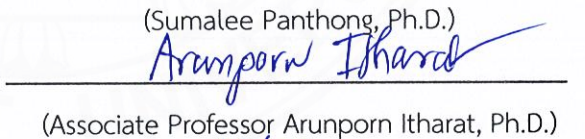 (Sumalee Panthong, Ph.D.)
Arunporn Itharat
(Associate Professor Arunporn Itharat, Ph.D.)